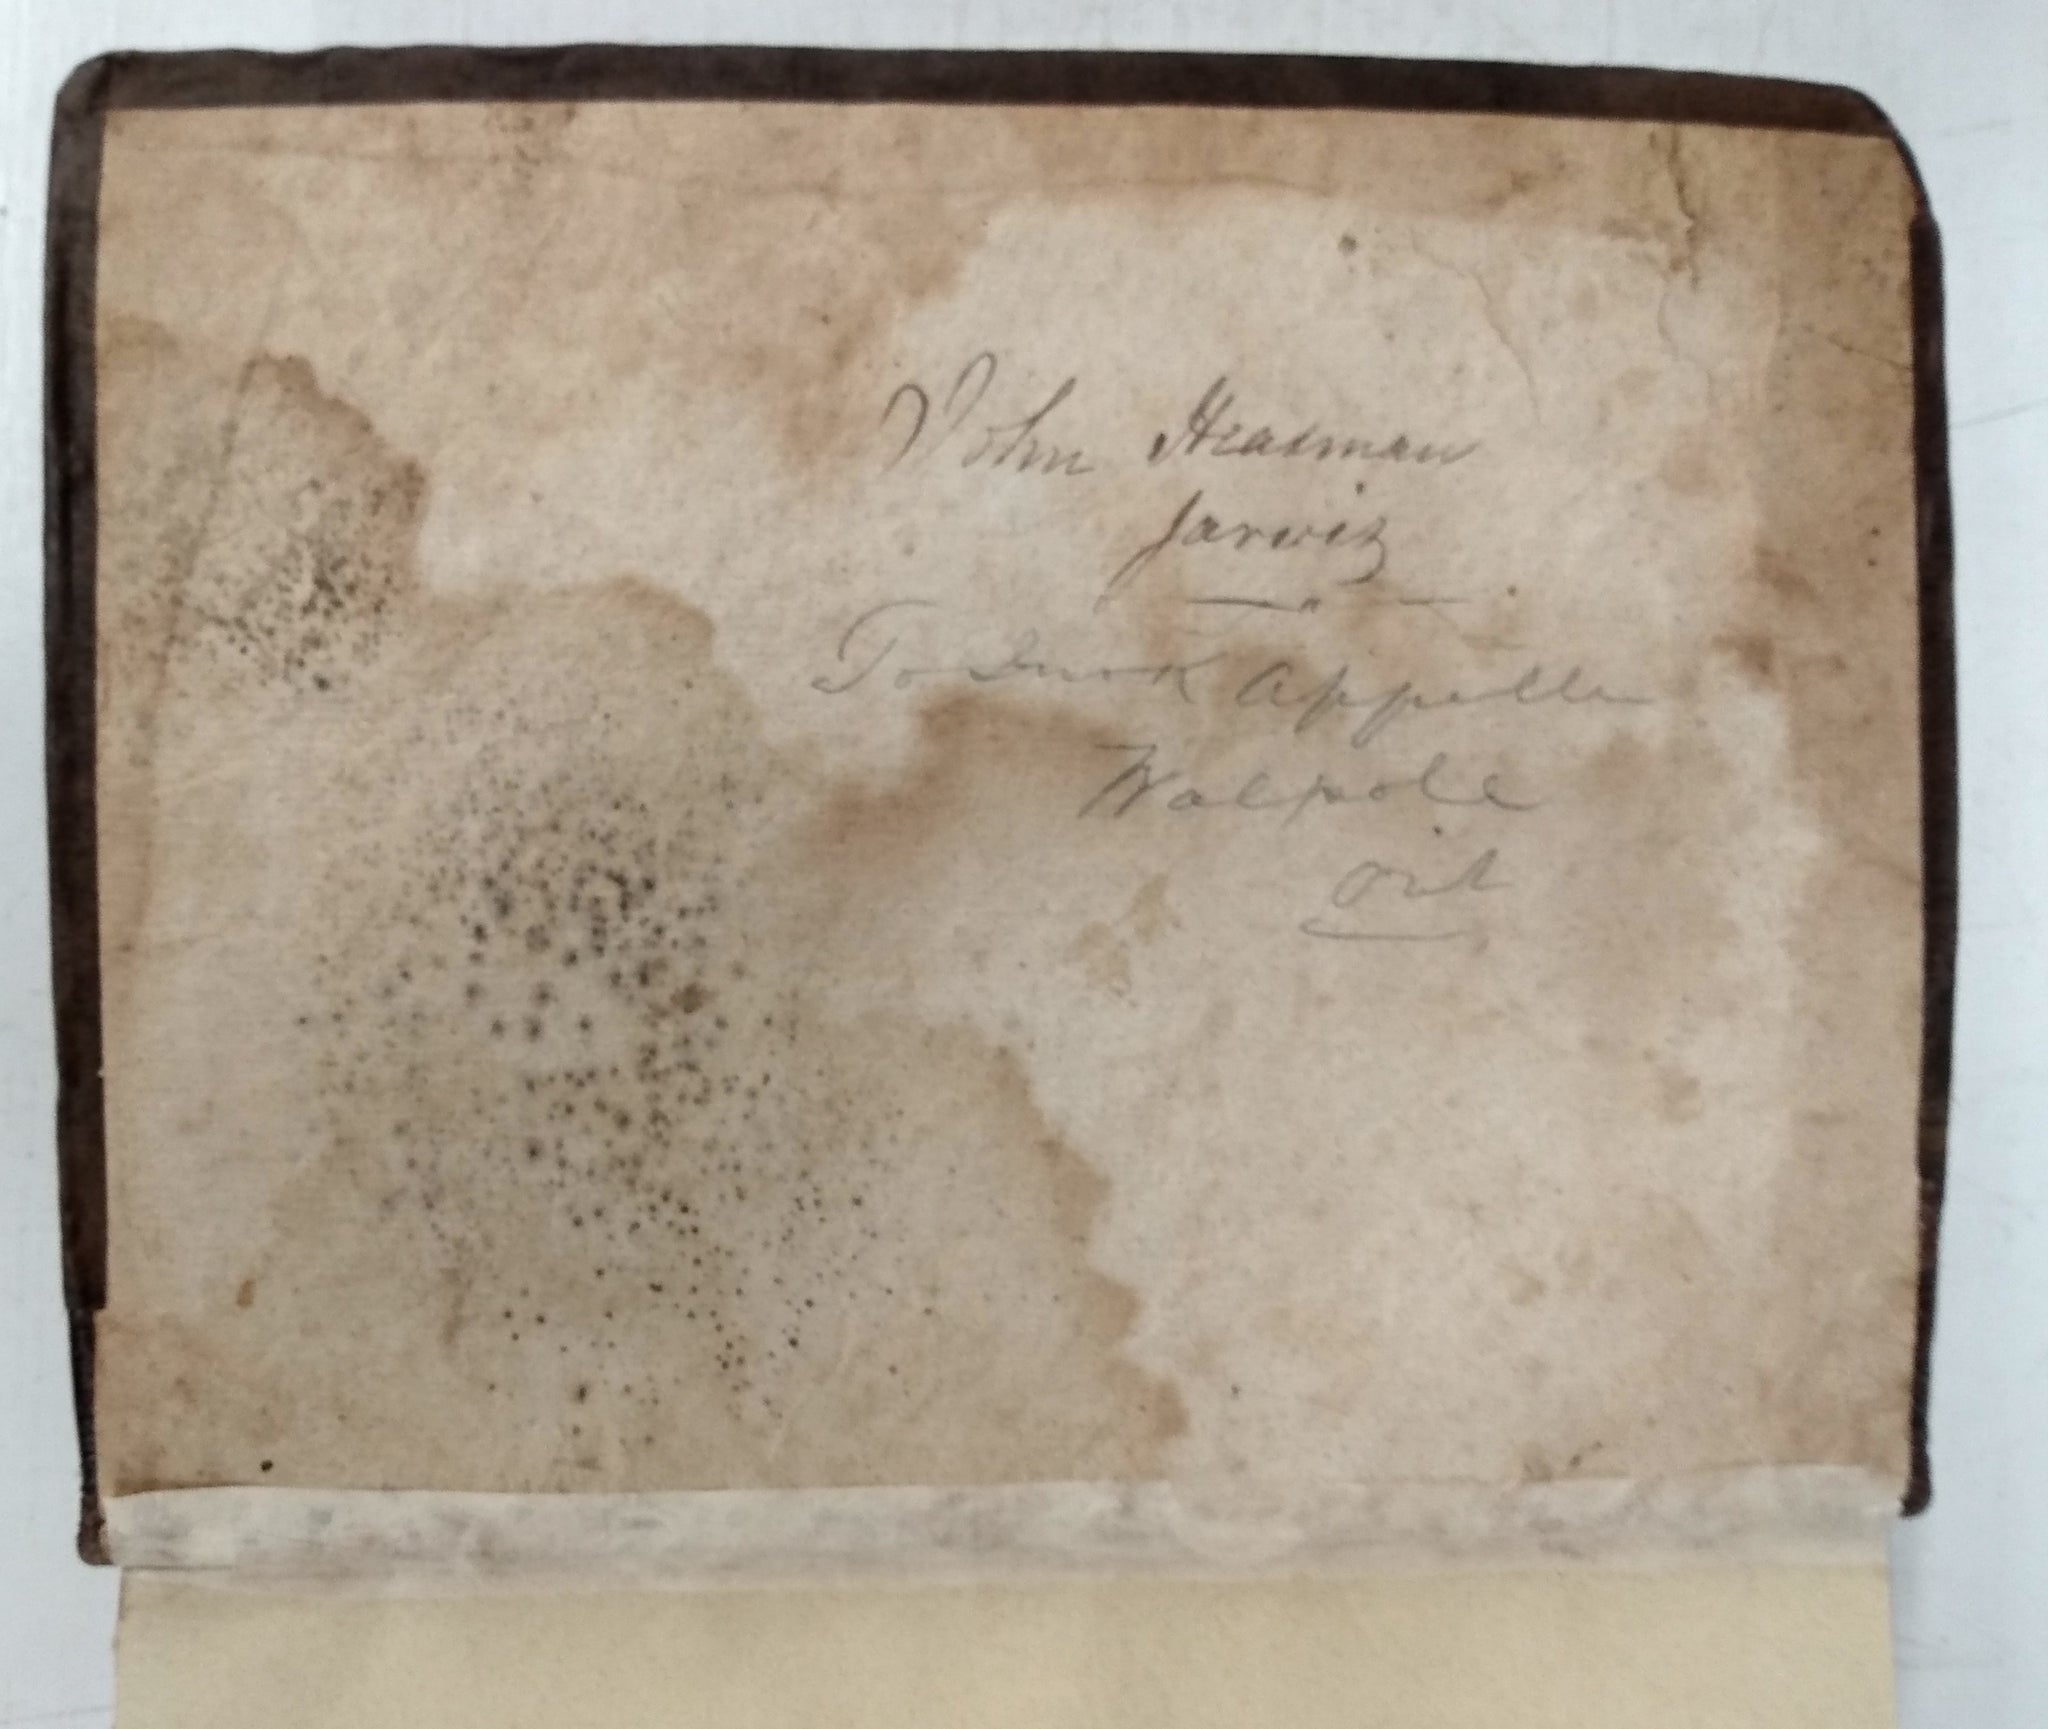 John Headman
Jarvis
To Enock Appelle
Walpole
Ont